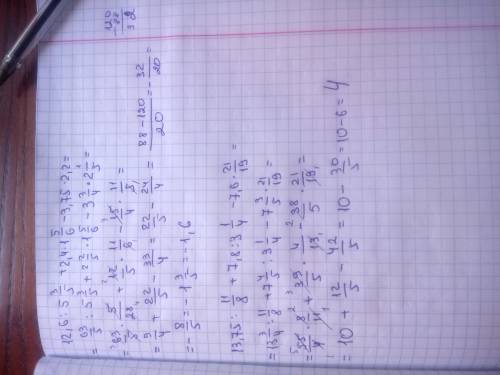 120
-88
32
12,6:5 3/5+2,4·1 5/6-3,75·2,2=
=63/5:5 3/5+2 2/5·1 5/6-3 3/4·2 1/5=
=63/5·5/28+12/5·11/6-15/4·11/5=
=9/4+22/5-33/4=22/5-24/4=(88-120)/20=-32/20=
=-8/5=-1 3/5=-1,6
13,75:11/8+7,8:3 1/4-7,6·21/19=
=13 3/4:11/8+7 4/5:3 1/4-7 3/5·21/19=
=55/4·8/11+39/5·4/13-38/5·21/19=
=10+12/5-42/5=10-30/5=10-6=4